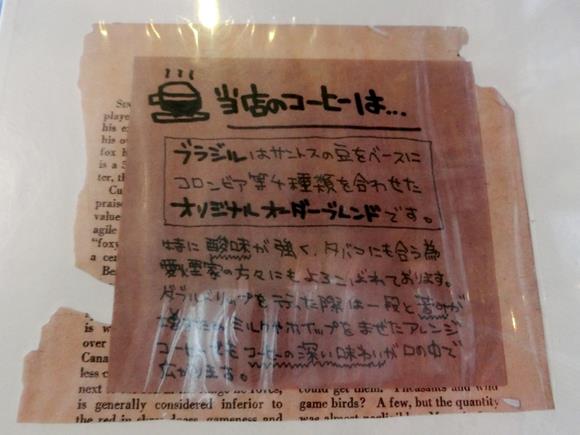 当店のコーヒーは...
ブラジルはサントスの豆をベースに
コロンビア等4種類を合わせた
オリジナルオーダーブレンドです。
特に酸味が強く、タバコにも合う為
愛煙家の方々にもよろこばれております。
ダブルドリップを行った際は一段と苦みが
増すため ミルクやホイップをまぜたアレンジ
コーヒーでも コーヒーの深い味わいが口の中で
広がります。
playe
his e
his o
fox
is a
ter, t
Cu
prais
value
agile
"foxy
a cer
Be
is w
over
Cana
less c
next
is generally considered inferior to
the red in
gameness and
could get them. Pheasants and wild
game birds? A few, but the quantity
was almost negligible.